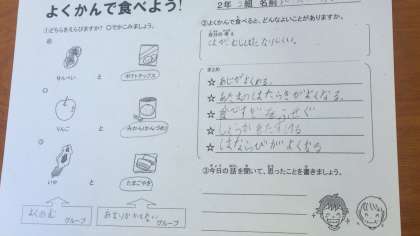 よくかんで食べよう!
2年 2組 名前
①どちらをえらびますか? ○でかこみましょう。
せんべい と ポテトチップス
りんご と みかん(かんづめ)
いか と たまごやき
よくかむ グループ
あまりかまない グループ
②よくかんで食べると、どんなよいことがありますか。
自分の考え
はが、むしばになりにくい。
まとめ
☆ あじがよくわかる。
☆ あたまのはたらきがよくなる。
☆ ふせぐ
☆ しょうかをたすける
☆ はならびがよくなる
③今日の話を聞いて、思ったことを書きましょう。